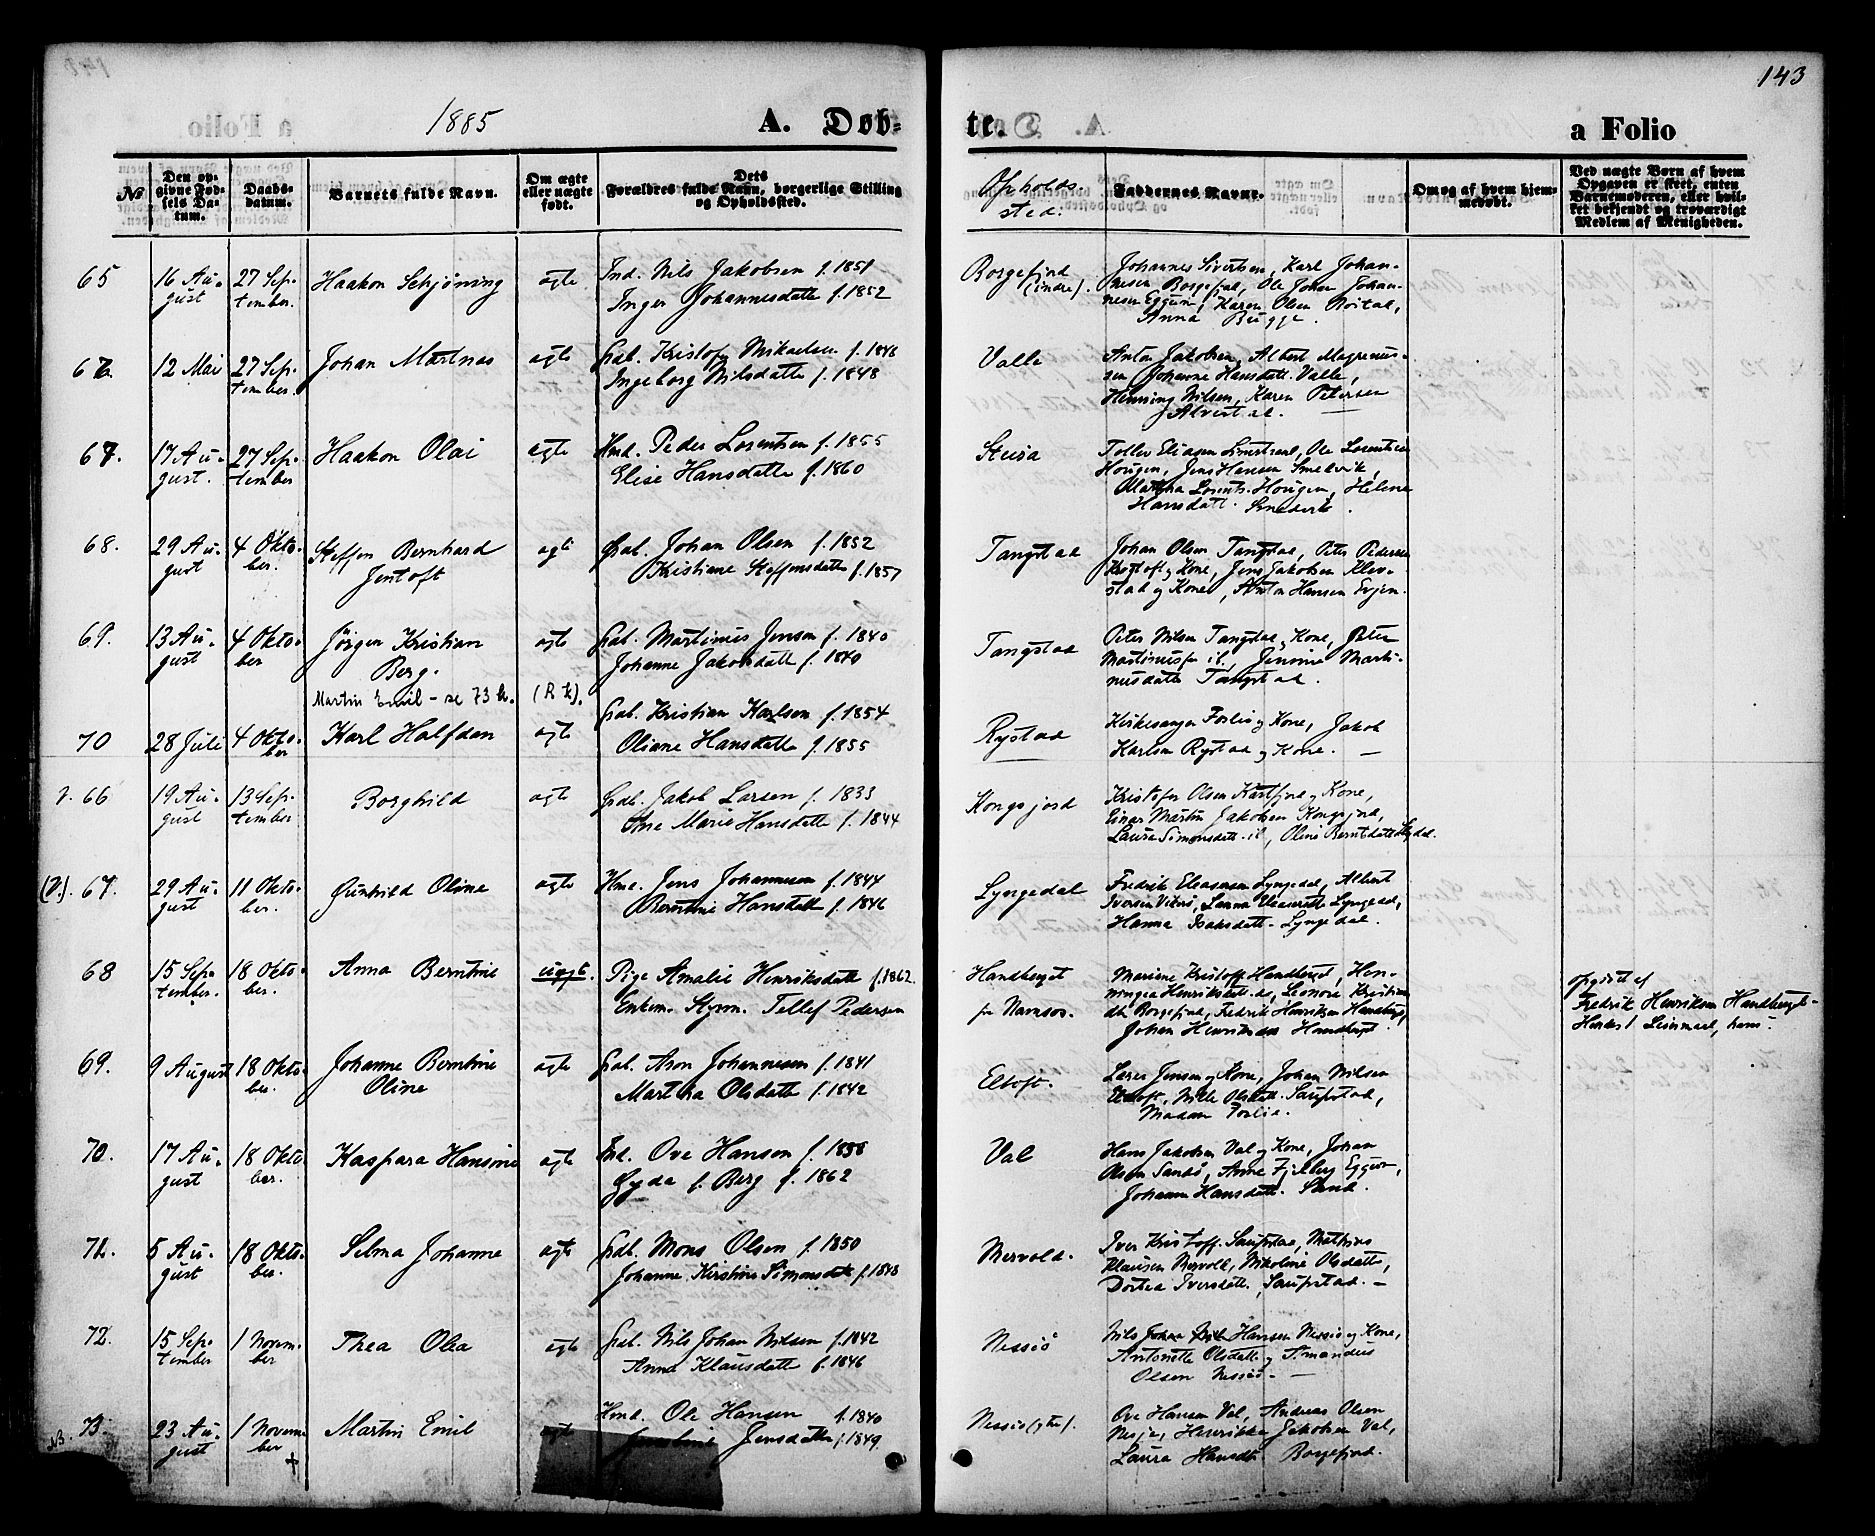 143
1885
A. Døb-
te.
a Folio
№
Den op-
givne Fød-
sels Da-
tum.
Daabs-
datum.
Barnets fulde Navn.
Om ægte
eller uægte
født.
Dets
Forældres fulde Navn, borgerlige Stilling
og Opholdssted.
Opholds-
sted:
Faddernes Navne.
Om og af hvem hjem-
medøbt.
Ved uægte Børn af hvem
Opgaven er skeet, enten
Barnemoderen, eller hvil-
ket bekjendt og troværdigt
Medlem af Menigheden.
65
16 Au-
gust
27 Sep-
tember.
Haakon Schjøning
ægte
Ind. Nils Jakobsen f. 1851
Inger Johannesdatte f. 1852
Borgefjord
(indre).
Johannes Sivertsen, Karl Johan-
nesen Borgefjord, Ole Johan Johan-
nesen Eggum, Karen Olsen
Anna Bugge.
66.
12 Mai
27 Sep-
tember.
Johan Martnas
ægte
Gab. Kristofer Mikaelsen f. 1846
Ingeborg Nilsdatte f. 1848
Valle
Anton Jakobsen, Albert Magnus-
sen Johanne Hansdatt. Valle,
Henning Nilsen, Karen Petersen
67.
17 Au-
gust.
27 Sep-
tember
Haakon Olai
ægte
Hmd. Peder Lorentsen f. 1855
Elise Hansdatte f. 1860
Steira
Tollev Eliasen Ole Lorentsen
Hougen, Jens Hansen Smedvik,
Martha Lorents. Hougen, Helene
Hansdatt. Smedvik.
68.
29 Au-
gust
4 Okto-
ber.
Steffen Bernhard
Jentoft
ægte
Gab. Johan Olsen f. 1852
Kristiane Steffensdatte f. 1857
Tangstad
Johan Olsen Tangstad, Peter Pedersen
og Kone, Jens Jakobsen Klev-
stad og Kone, Anton Hansen Evjen.
69.
13 Au-
gust
4 Okto-
ber
Jørgen Kristian
Berg.
ægte
Gab. Martinus Jensen f. 1840
Johanne Jakobsdatte f. 1840
Tangstad
Peter Nilsen Tangstad, Kone, Peter
Martinussen il., Jensine Marti-
nusdatte Tangstad.
Martin Emil - se 73 k.
(R k).
70
28 Juli
4 Okto-
ber
Karl Halfdan
ægte
Gab. Kristian Karlsen f. 1854
Oliane Hansdatte f. 1855
Rystad
Kirkesanger Forlie og Kone, Jakob
Karlsen Rystad og Kone. —
66
19 Au-
gust
13 Sep-
tember
Borghild
ægte
Gab. Jakob Larsen f. 1833
Ane Marie Hansdatte f. 1844
Kongsjord
Kristofer Olsen og Kone,
Einar Martin Jakobsen Kongsjord,
Laura Simonsdatt. il., Oline Berntsdatte
67.
29 Au-
gust
11 Okto-
ber.
Gunhild Oline
ægte
Hmd. Jens Johannesen f. 1844
Berntine Hansdatt f. 1846
Lyngedal
Fredrik Eleasersen Lyngedal, Albert
Iversen Lyngedal,
Hanna Isaksdatt. Lyngedal.
68
15 Sep-
tember.
18 Okto-
ber.
Anna Berntine
uægt.
Pige Amalie Henriksdatte f. 1862.
Enkem. Styrm. Tellef Pedersen
Handberget
fr Namsos.
Mariane Kristoff. Handberget, Hen-
ningea Henriksdatt. il., Leonore Kristian-
dtr. Borgefjord, Fredrik Henriksen Handberg,
Johan Henriksen Handbergt.
opgivet af
Fredrik Henriksen Handberget
69.
9 August
18 Okto-
ber.
Johanne Berntine
Oline
ægte
Gab. Aron Johannesen f. 1841
Martha Olsdatte f. 1842
Eltoft.
Lars Jensen og Kone, Johan Nilsen
Eltoft, Nille Olsdatt. Saupstad,
Madam Forlie.
70.
17 Au-
gust
18 Okto-
ber.
Kaspara Hansine
ægte
Ind. Ove Hansen f. 1858
Gyda f. Berg f. 1862
Val
Hans Jakobsen Val og Kone, Johan
Olsen Sandø, Anne Fjelberg Eggum,
Johanna Hansdatte. Sand.
71.
5 Au-
gust
18 Okto-
ber.
Selma Johanne
ægte
Gab. Mons Olsen f. 1850
Johanne Kirstine Simonsdatt f. 1848
Mervold.
Iver Kristoff. Saupstad, Mathias
Klausen Mervold, Nikoline Olsdatte,
Dortea Iversdatt. Saupstad. —
72.
15 Sep-
tember
1 Novem-
ber
Thea Olea
ægte
Gab. Nils Johan Nilsen f. 1842
Anna Klausdatte f. 1846
Nessiø
Nils Hansen Nessiø og Kone,
Antonette Olsdatt. og Amandus
Olsen Nessiø. —
NB.
73.
23 Au-
gust
1 Novem-
ber
+
Martin Emil
ægte
Hmd. Ole Hansen f. 1840
Jensdatte f. 1849.
Nessiø (ytre).
Ove Hansen Val, Andreas Olsen
Nesje, Henrikke Jakobsen Val,
Laura Hansdt. Borgefjord.